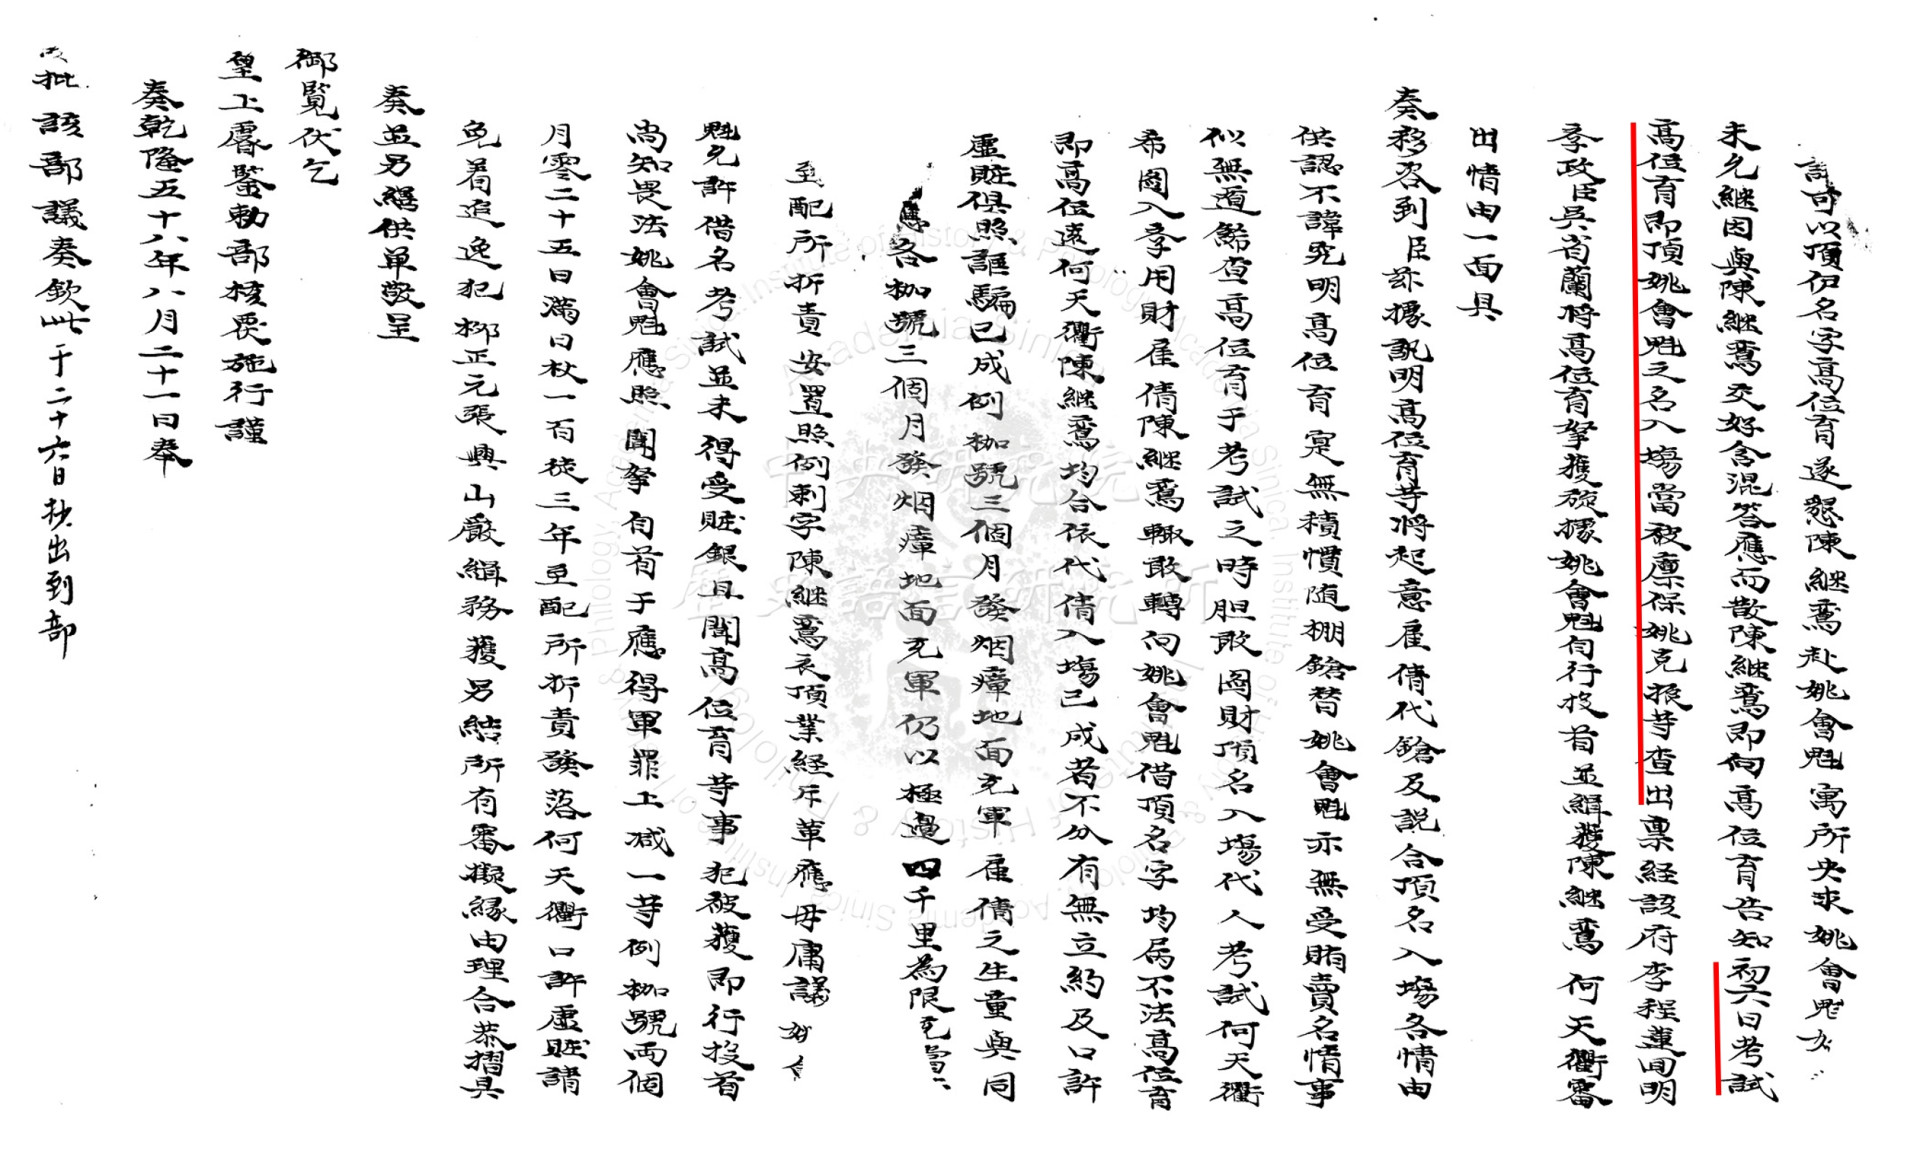 許可以頂伊名字高位育遂懇陳継焉赴姚會魁寓所央求姚會魁
未允継因與陳継焉交好含混答應而散陳継焉即向高位育告知初六日考試
高位育即頂姚會魁之名入塲當被廪保姚克振等查出禀経該府李程蓮回明
李政臣吳省蘭将高位育拏獲旋據姚會魁自行投首並緝獲陳継焉何天衢審
出情由一面具
奏移咨到臣茲據訊明高位育等将起意雇倩代鎗及説合頂名入塲各情由
供認不諱究明高位育寔無積慣随棚鎗替姚會魁亦無受賄賣名情事
似無遁餙查高位育于考試之時胆敢圖財頂名入塲代人考試何天衢
希圖入李用財雇倩陳継焉輙敢轉向姚會魁借頂名字均属不法高位育
即高位遠何天衢陳継焉均合依代倩入塲已成者不分有無立約及口許
虛賍俱照誆騙已成例枷號三個月發烟瘴地面充軍雇倩之生童與同
應各枷號三個月發烟瘴地面充軍仍以極邊四千里為限
至配所折責安置照例刺字陳継焉衣頂業経斥革應毋庸議
魁允許借名考試並未得受賍銀且聞高位育等事犯被獲即行投首
尚知畏法姚會魁應照聞拏自首于應得軍罪上减一等例枷號両個
月零二十五日滿日杖一百徒三年至配所折責發落何天衢口許虛賍請
免着追逸犯柳正元張興山嚴緝務獲另結所有審擬縁由理合恭摺具
奏並另繕供单敬呈
御覧伏乞
皇上睿鑒勅部核覆施行謹
奏乾隆五十八年八月二十一日奉
硃批該部議奏欽此于二十六日抄出到部
中央研究院
歷史語言研究所
Institute of History & Philology, Academia Sinica